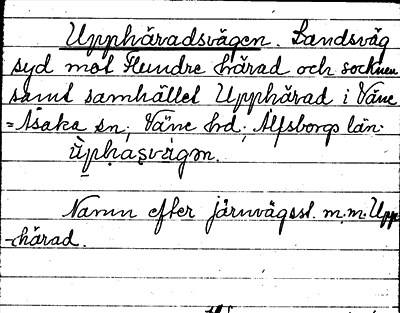 Upphäradsvägen. Landsväg
syd mot Flundre härad och socknen
samt samhället Upphärad i Väne
=Åsaka sn, Väne hd, Älfsborgs län.
ùphaṣvä́gən.
Namn efter järnvägsst. m.m. Upp-
-härad.